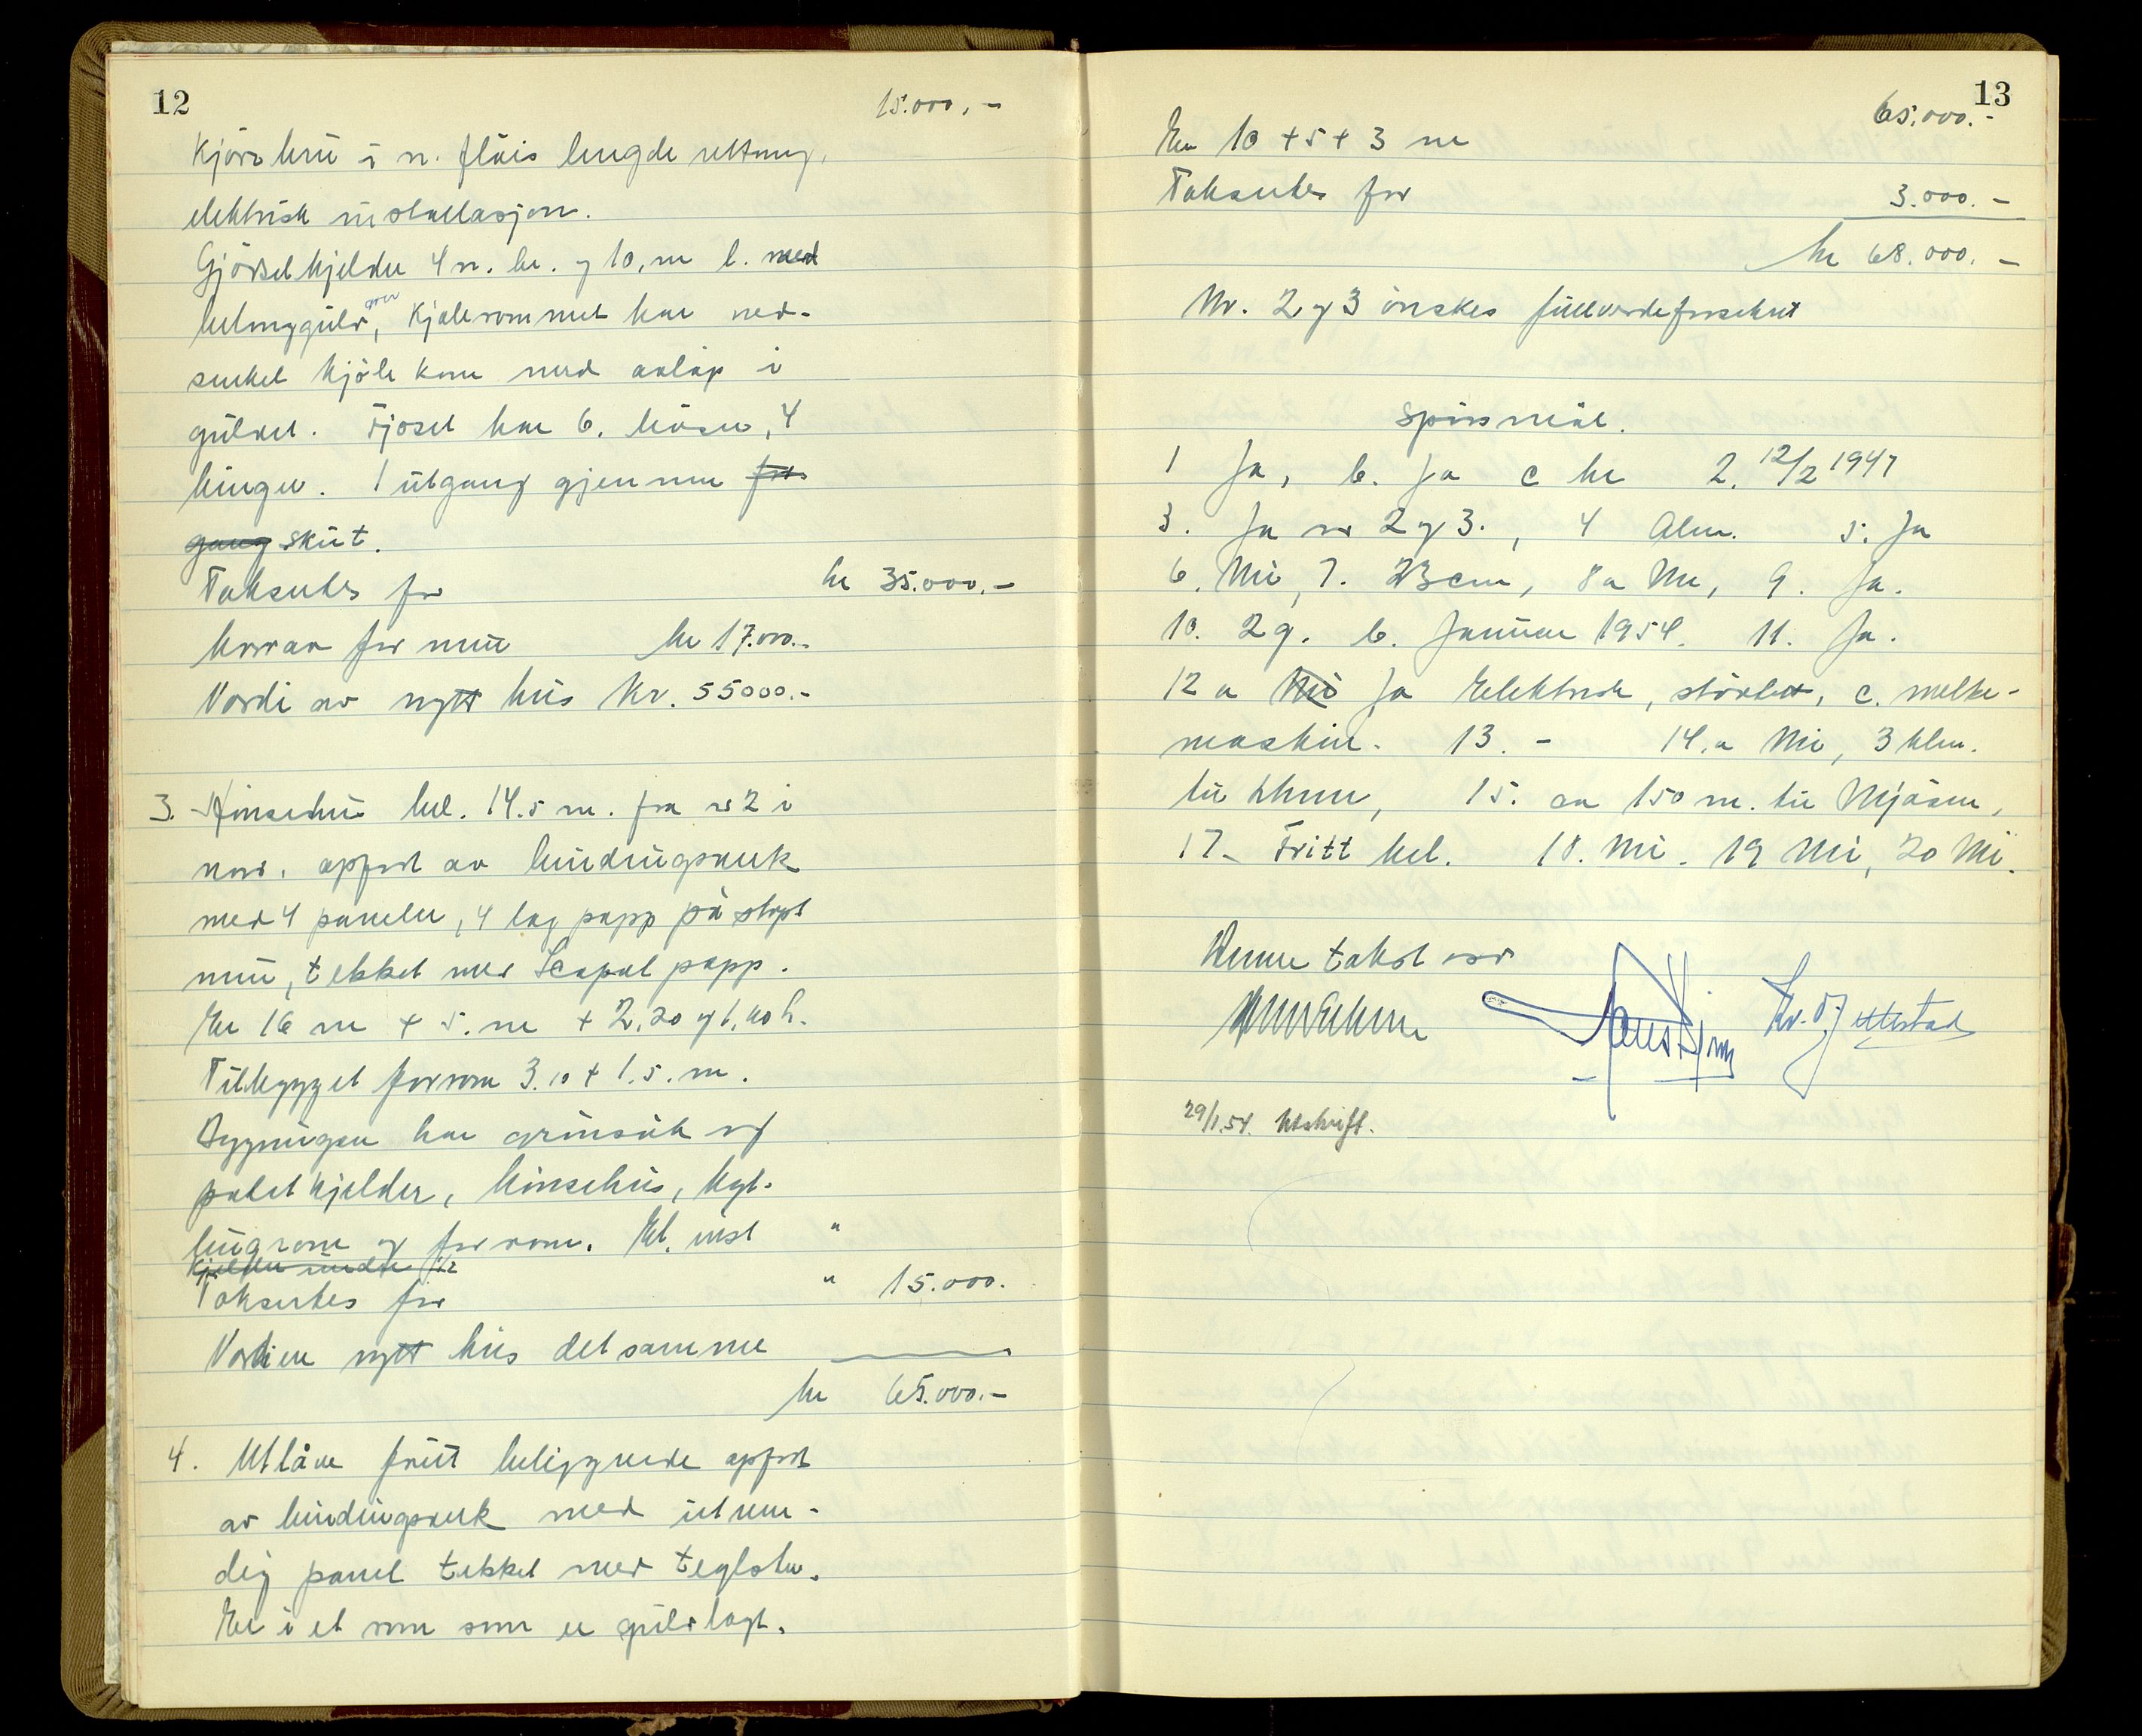 12
15.000,-
Kjørebru i n. fløis lengde retning,
elektrisk installasjon.
Gjødselkjeller 4 m. br. og 10, m l. med
betonggulv over, Kjølerommet har ned-
senket kjøle kum med avløp i
gulvet. Fjøset har 6. båser, 4
binger. 1 utgang gjennem
gang skut.
Takseres for kr 35.000.-
hvorav for mur kr 17.000.-
Verdi av nytt hus Kr. 55000.-
3. Hønsehus bel. 14.5 m. fra nr 2 i
nord. oppført av bindingsverk
med 4 paneler, 4 lag papp på støpt
mur, tekket med papp.
Er 16 m + 5. m + 2,20 og 1,40 h.
Tilbygget forrom 3.10 + 1.5. m.
Bygningen har grønsak og
potet kjelder, hønsehus, kyl-
lingrom og forrom. El. inst "
Kjelder under 1/2
Takseres for " 15.000.
Verdien nytt hus det samme
kr 65.000.-
4. Utlåve fritt beliggende oppført
av bindingsverk med utven-
dig panel tekket med teglsten.
Er i et rom som er gulvlagt.
13
65.000.-
Er 10 + 5 + 3 m
Takseres for 3.000.-
kr 68.000.-
Nr. 2 og 3 ønskes fullverdiforsikret
Spørsmål.
1 Ja, b. Ja c kr 2. 12/2 1947
3. Ja nr 2 og 3., 4 Alm. 5. Ja
6. Nei, 7. 23 cm, 8a Nei, 9. Ja.
10. 29. b. Januar 1954. 11. Ja.
12 a Nei Ja Elektrisk, støvtett, c. melke-
maskin. 13. - 14.a Nei, 3 klm.
til, 15. ca 150 m. til Mjøsen,
17. Fritt bel. 18. Nei. 19 Nei, 20 Nei.
Denne takst
29/1.54. Utskrift.